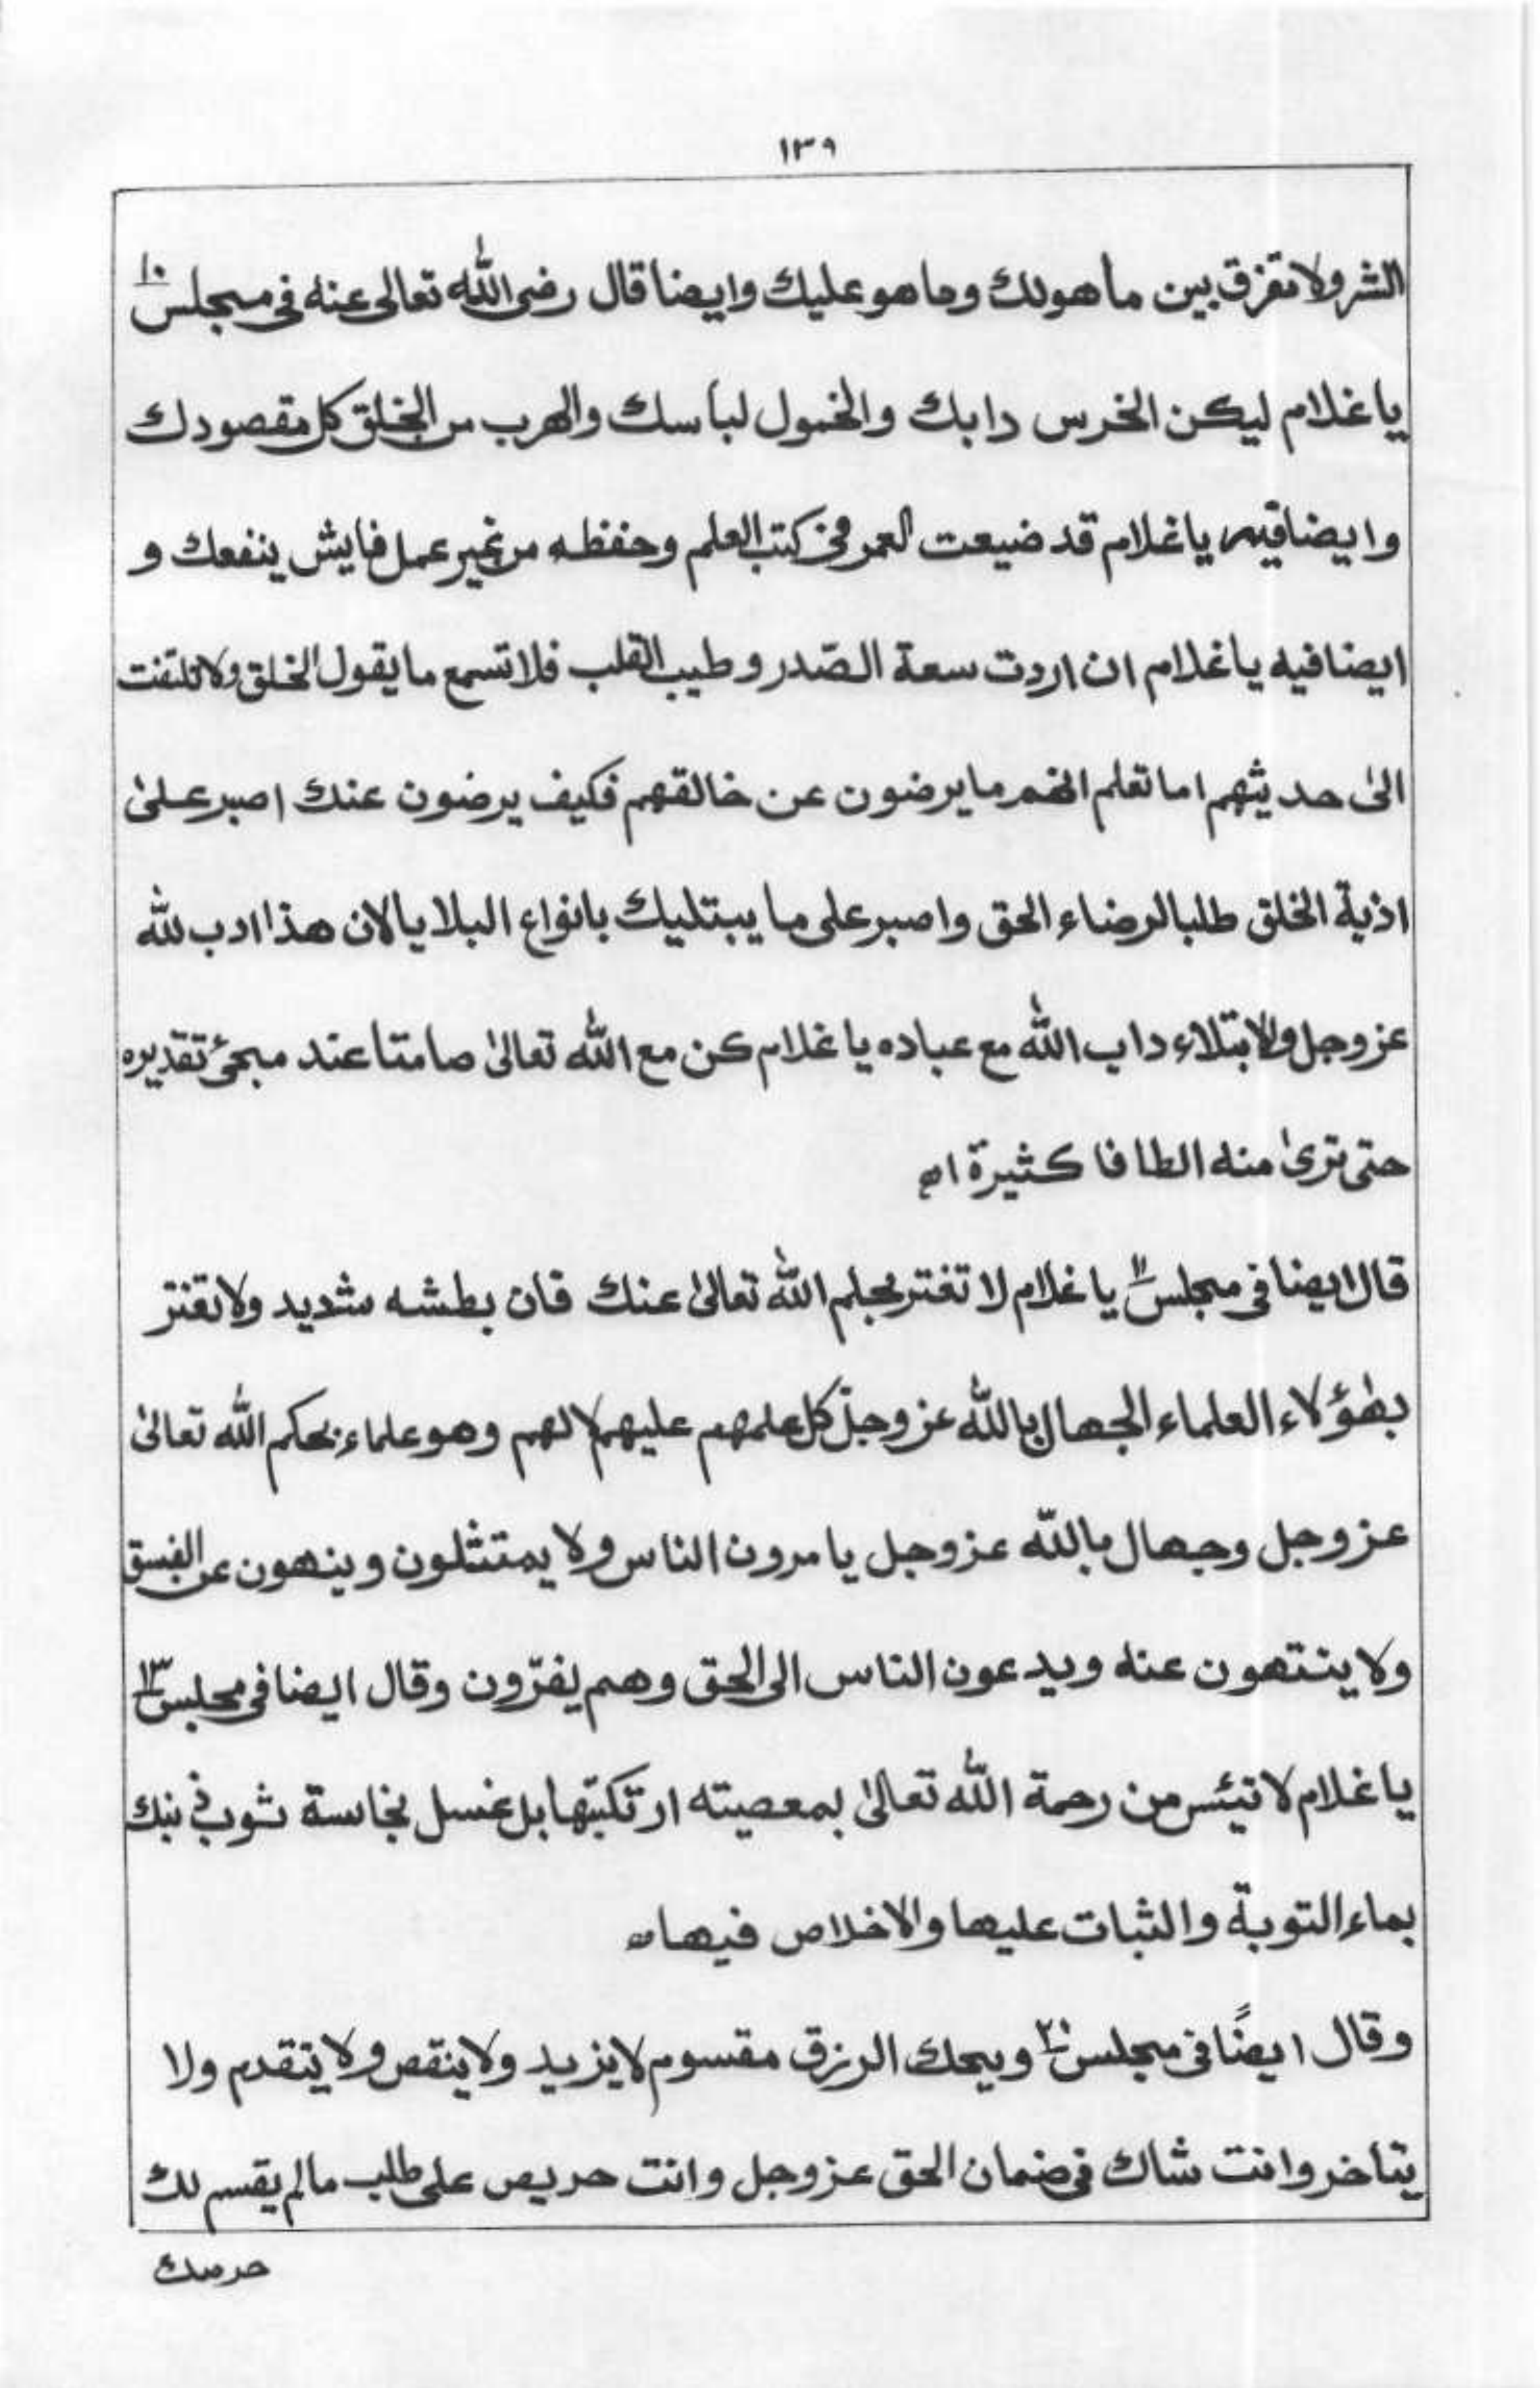 ١٣٩
الشر ولا تفرق بين ما هو لك وما هو عليك وايضا قال رضى الله تعالى عنه فى مجلس ١٠
يا غلام ليكن الخرس دابك والخمول لباسك والهرب من الخلق كل مقصودك
وايضا فيه يا غلام قد ضيعت العمر فى كتب العلم وحفظه من غير عمل فايش ينفعك و
ايضا فيه يا غلام ان اردت سعة الصّدر وطيب القلب فلا تسمع ما يقول الخلق ولا تلتفت
الىٰ حديثهم اما تعلم انهم ما يرضون عن خالقهم فكيف يرضون عنك اصبر علىٰ
اذية الخلق طلبا لرضاء الحق واصبر على ما يبتليك بانواع البلايا لان هذا ادب لله
عز وجل والابتلاء داب الله مع عباده يا غلام كن مع الله تعالىٰ صامتا عند مجئ تقديره
حتى ترىٰ منه الطافا كثيرة اه
قال ايضا فى مجلس ١١ يا غلام لا تغتر بحلم الله تعالىٰ عنك فان بطشه شديد ولا تغتر
بهٰؤلاء العلماء الجهال بالله عز وجلّ كل علمهم عليهم لا لهم وهو علماء بحكم الله تعالىٰ
عز وجل وجهال بالله عز وجل يامرون الناس ولا يمتثلون وينهون عن الفسق
ولا ينتهون عنه ويدعون الناس الى الحق وهم يفرّون وقال ايضا فى مجلس ١٣
يا غلام لا تيئس من رحمة الله تعالىٰ بمعصيته ارتكبتها بل غسل نجاسة ثوب ذنبك
بماء التوبة والثبات عليها والاخلاص فيها اه
وقال ايضًا فى مجلس ٢١ ويحك الرزق مقسوم لا يزيد ولا ينقص ولا يتقدم ولا
يتاخر وانت شاك فى ضمان الحق عز وجل وانت حريص على طلب ما لم يقسم لك
حرصك